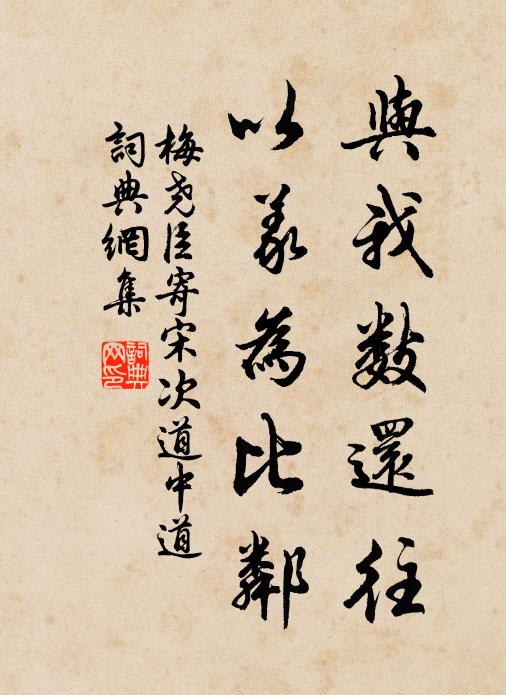 與我數還往
以義為比鄰
梅堯臣寄宋次道中道
詞典網集
詞典網印